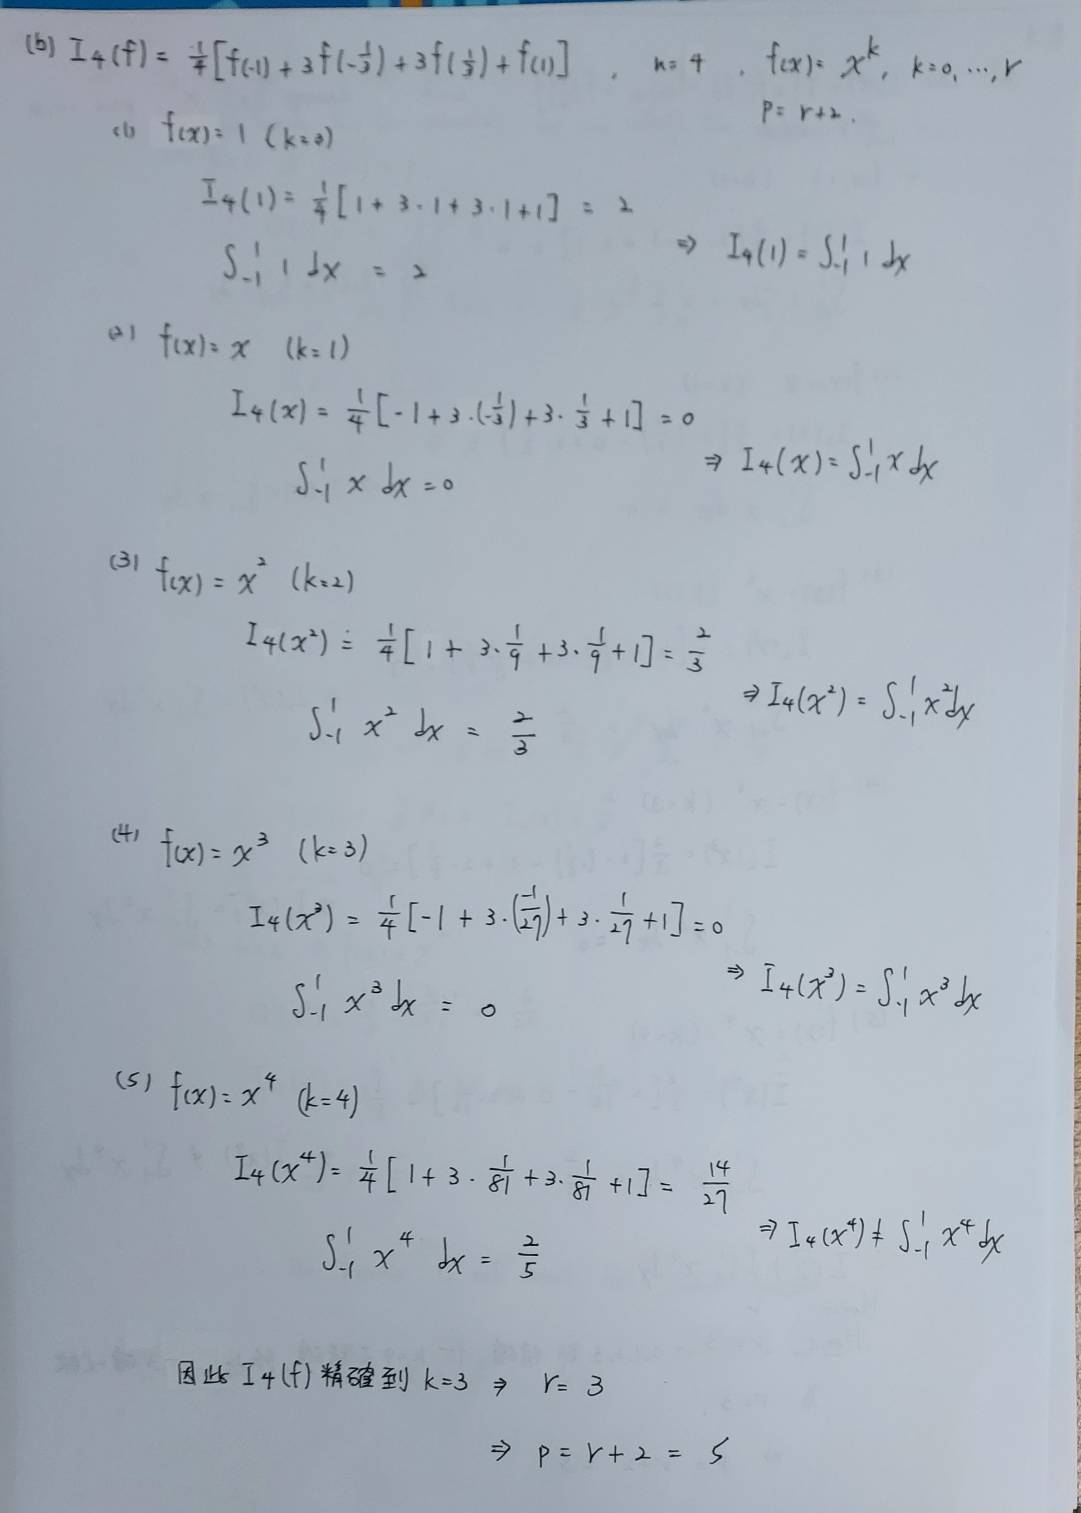 (b) I₄(f) = 1/4 [f(-1) + 3f(-1/3) + 3f(1/3) + f(1)] , n = 4 , f(x) = x^k, k=0, ..., r
p = r+2.
(1) f(x) = 1 (k=0)
I₄(1) = 1/4 [1 + 3·1 + 3·1 + 1] = 2
∫₋₁¹ 1 dx = 2 ⇒ I₄(1) = ∫₋₁¹ 1 dx
(2) f(x) = x (k=1)
I₄(x) = 1/4 [-1 + 3·(-1/3) + 3·1/3 + 1] = 0
∫₋₁¹ x dx = 0 ⇒ I₄(x) = ∫₋₁¹ x dx
(3) f(x) = x² (k=2)
I₄(x²) = 1/4 [1 + 3·1/9 + 3·1/9 + 1] = 2/3
∫₋₁¹ x² dx = 2/3 ⇒ I₄(x²) = ∫₋₁¹ x² dx
(4) f(x) = x³ (k=3)
I₄(x³) = 1/4 [-1 + 3·(-1/27) + 3·1/27 + 1] = 0
∫₋₁¹ x³ dx = 0 ⇒ I₄(x³) = ∫₋₁¹ x³ dx
(5) f(x) = x⁴ (k=4)
I₄(x⁴) = 1/4 [1 + 3·1/81 + 3·1/81 + 1] = 14/27
∫₋₁¹ x⁴ dx = 2/5 ⇒ I₄(x⁴) ≠ ∫₋₁¹ x⁴ dx
因此 I₄(f) 精確到 k=3 ⇒ r = 3
⇒ p = r+2 = 5